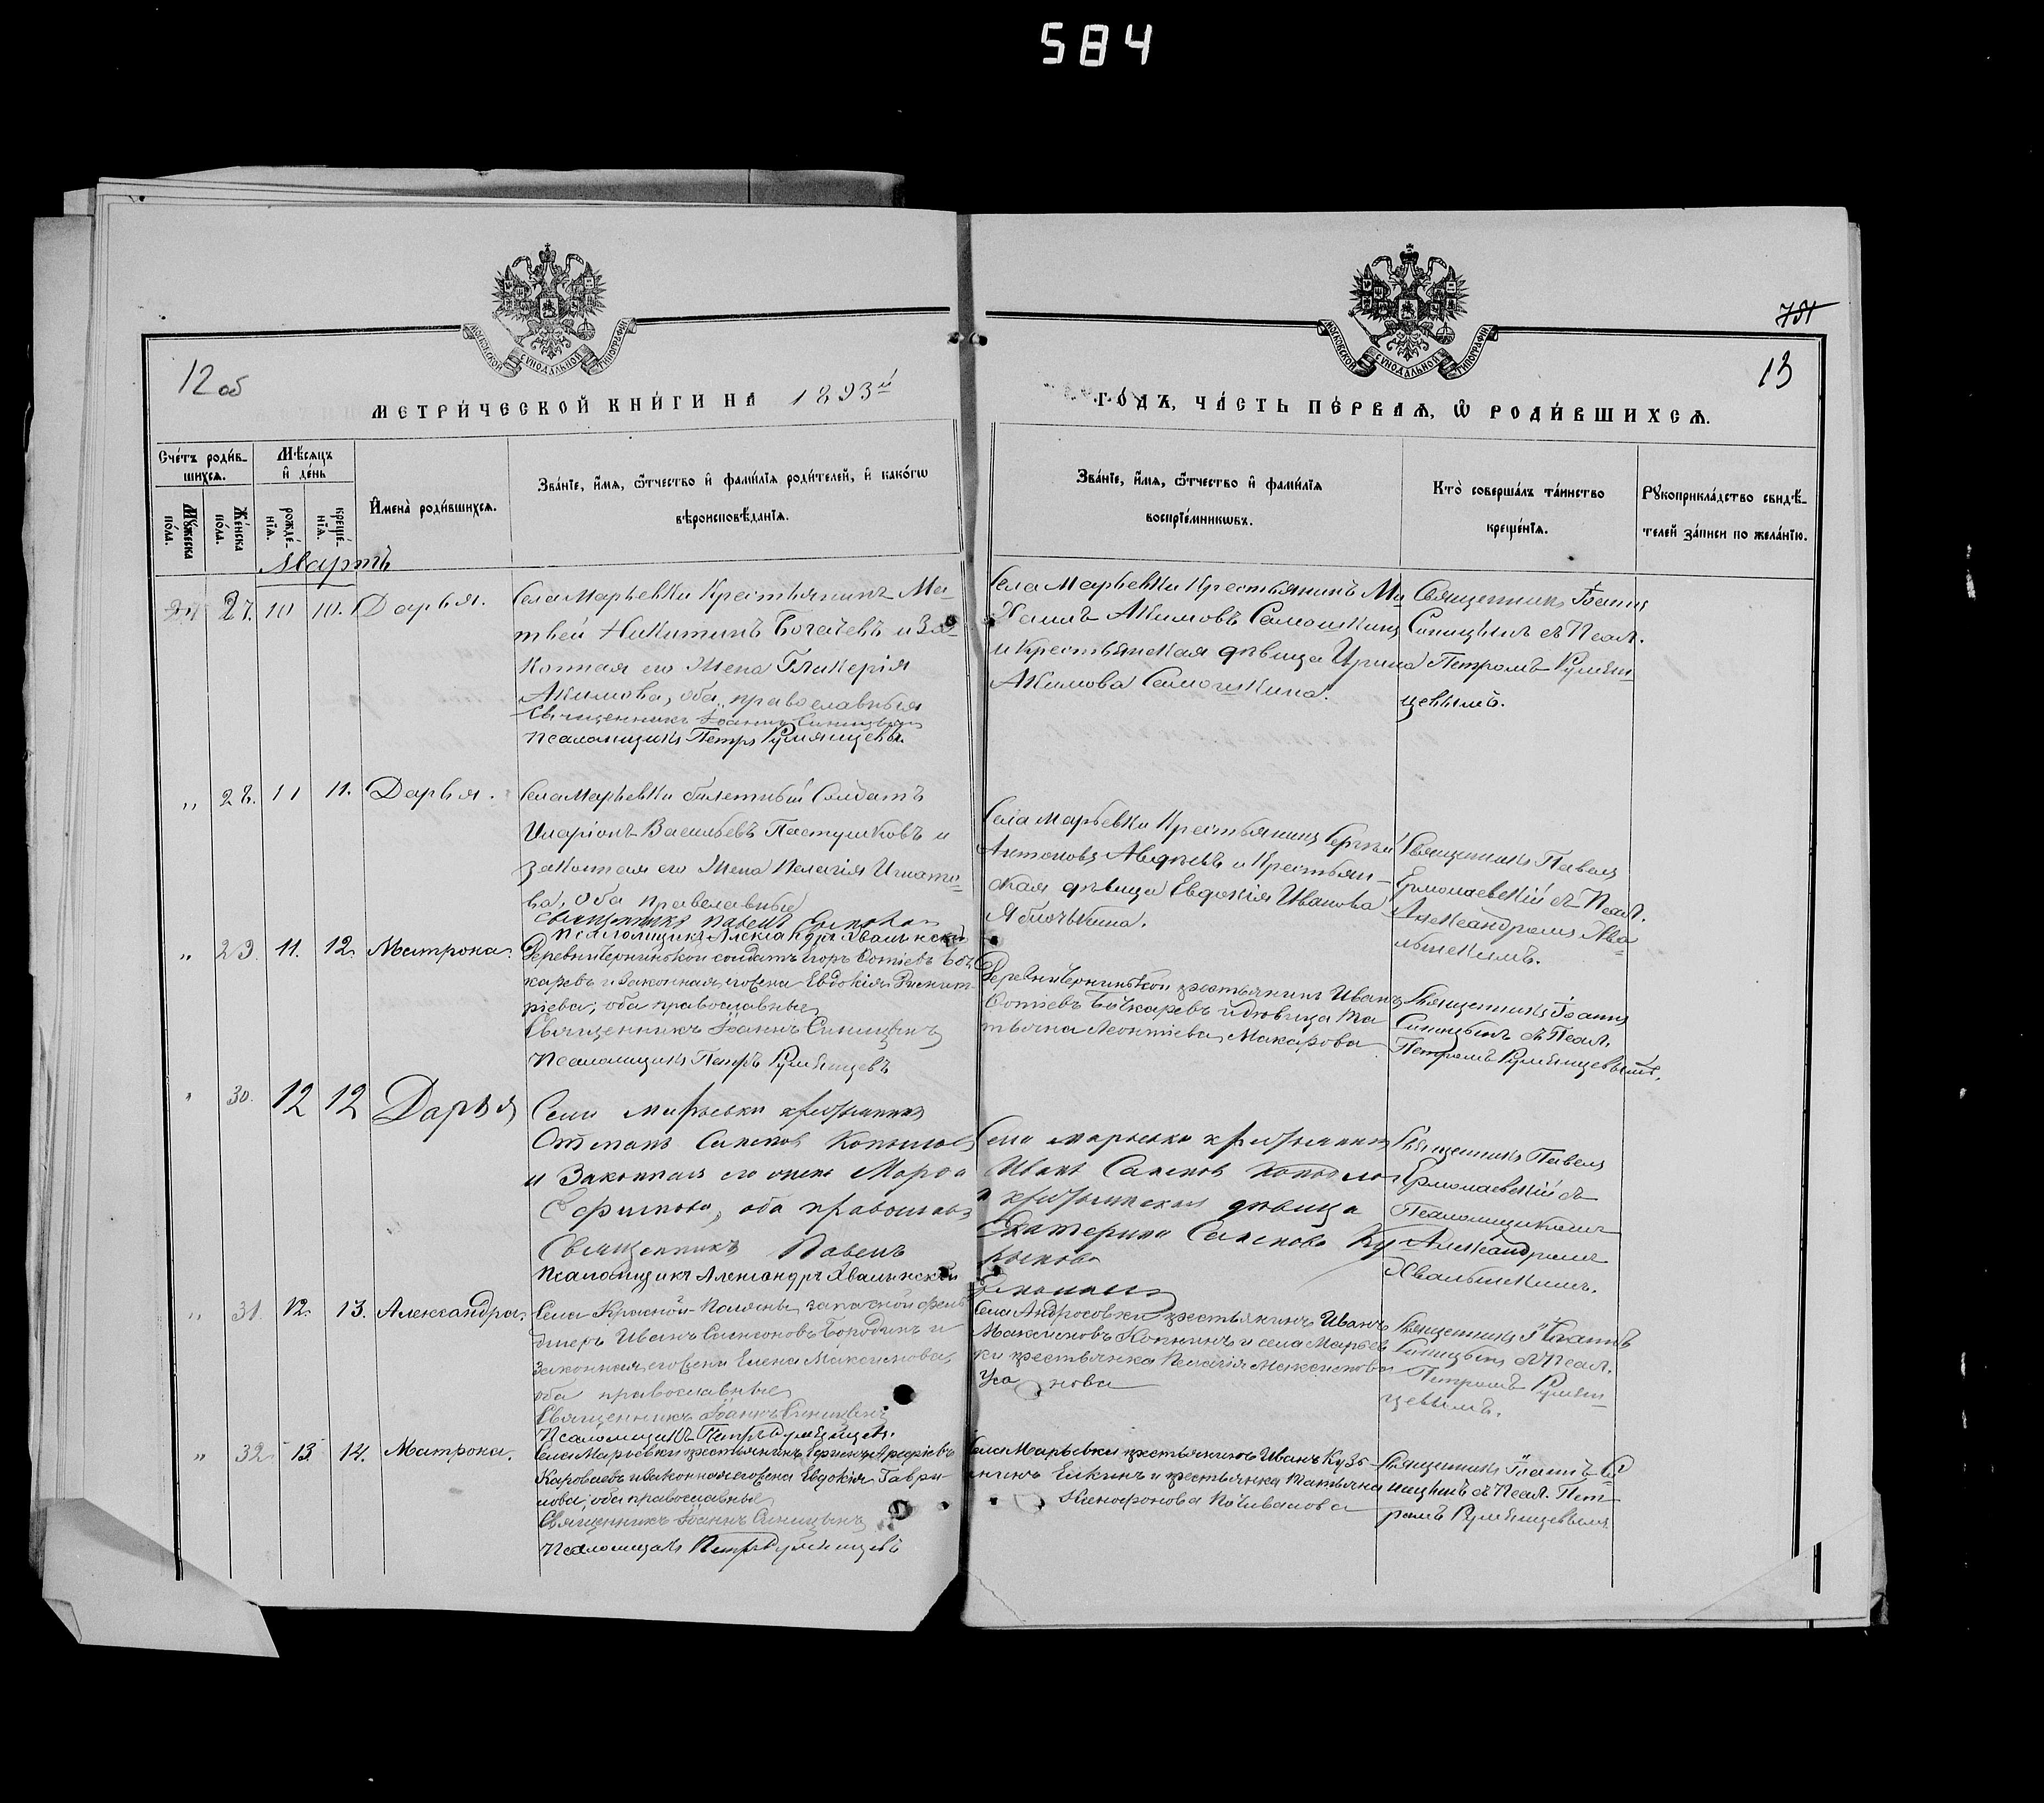 584
МОСКОВСКОЙ СУНОДАЛЬНОЙ ТИПОГРАФІИ
МОСКОВСКОЙ СУНОДАЛЬНОЙ ТИПОГРАФІИ
12 об
13
МЕТРИ́ЧЕСКОЙ КНИ́ГИ НА 1893й
ГО́ДЪ, ЧА́СТЬ ПЕ́РВАѦ, Ѡ РОДИ́ВШИХСѦ.
Сче́тъ роди́в-
шихсѧ.
Мѣ́сѧцъ
и҆ де́нь
Мꙋ́жеска
по́ла.
Же́нска
по́ла.
рожде́-
нїѧ.
креще́-
нїѧ.
И҆мена̀ роди́вшихсѧ.
Зва́нїе, и҆́мѧ, ѻ҆́тчество и҆ фами́лїѧ роди́телей, и҆ како́гѡ
вѣроисповѣ́данїѧ.
Зва́нїе, и҆́мѧ, ѻ҆́тчество и҆ фами́лїѧ
воспрїе́мникѡвъ.
Кто̀ соверша́лъ та́инство
креще́нїѧ.
Рꙋкоприкла́дство свидѣ́-
телей за́писи по жела́нїю.
Мартъ
27. 10 10. Дарья.
Села Марьевки Крестьянинъ Ма-
твей Никитинъ Богачевъ и За-
конная его Жена Гликерія
Акимова, оба православныя
Священникъ Іоаннъ Синицынъ
Псаломщикъ Петръ Румянцевъ.
Села Марьевки Крестьянинъ Ми
хаилъ Акимовъ Самошкинъ
и Крестьянская дѣвица Ирина
Акимова Самошкина.
Священникъ Іоаннъ
Синицынъ съ Псал.
Петромъ Румян-
цевымъ.
„ 28. 11 11. Дарья.
Села Марьевки билетный Солдатъ
Иларіонъ Васильевъ Пастушковъ и
законная его Жена Пелагія Игнатье-
ва, Оба православные
Священникъ Павелъ
Псаломщикъ Александръ Хвалынскій
Села Марьевки Крестьянинъ Сергѣй
Антоновъ Авдѣевъ и Крестьян-
ская дѣвица Евдокія Иванова
Яблочкина.
Священникъ Павелъ
Ермолаевскій съ Псал.
Александромъ Хва
лынскимъ.
„ 29. 11. 12. Матрона.
солдатъ Егоръ Фотіевъ Боч
каревъ и законная его жена Евдокія Димит-
ріева, оба православные
Священникъ Іоаннъ Синицынъ
Псаломщикъ Петръ Румянцевъ
крестьянинъ Иванъ
Фотіевъ Бочкаревъ и дѣвица Та
тьяна Леонтіева Макарова
Священникъ Іоаннъ
Синицынъ съ Псал.
Петромъ Румянцевымъ.
„ 30. 12 12 Дарья
Села Марьевки крестьянинъ
и Законная его жена Марфа
оба православ
Священникъ Павелъ
Псаломщикъ Александръ Хвалынскій
Села Марьевки крестьянинъ
Иванъ
и крестьянская дѣвица
Екатерина
Священникъ Павелъ
Ермолаевскій съ
Псаломщикомъ
Александромъ
Хвалынскимъ.
„ 31. 12. 13. Александра.
Села Красной-Поляны запасной фель-
дшеръ Иванъ Симоновъ Бородинъ и
законная его жена Елена Максимова,
оба православные
Священникъ Іоаннъ Синицынъ
Псаломщикъ Петръ Румянцевъ.
Села Андросовки крестьянинъ Иванъ
Максимовъ и села Марьев
ки крестьянка Пелагія Максимова
Священникъ Іоаннъ
Синицынъ съ Псал.
Петромъ Румян-
цевымъ.
„ 32. 13. 14. Матрона.
Села Марьевки крестьянинъ
Короваевъ и законная его жена Евдокія Гаври-
лова, оба православные
Священникъ Іоаннъ Синицынъ
Псаломщикъ Петръ Румянцевъ
Села Марьевки крестьянинъ Иванъ Кузь-
минъ Елкинъ и крестьянка Татьяна
Ксенофонова
Священникъ Іоаннъ Си
ницынъ съ Псал. Пет
ромъ Румянцевымъ